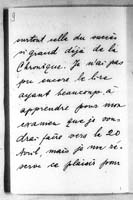 9
surtout celle du succès
si grand déjà de la
Chronique. Je n'ai pas
pu encore le lire
ayant beaucoup à
apprendre pour mon
examen que je vou-
drai faire vers le 20
Avril, mais je me ré-
serve ce plaisir pour